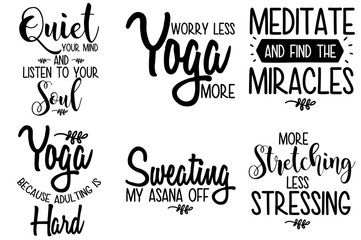 Quiet
YOUR MIND
AND
LISTEN TO YOUR
Soul
WORRY LESS
Yoga
MORE
MEDITATE
AND FIND THE
MIRACLES
Yoga
BECAUSE ADULTING IS
Hard
Sweating
MY ASANA OFF
MORE
Stretching
LESS
STRESSING